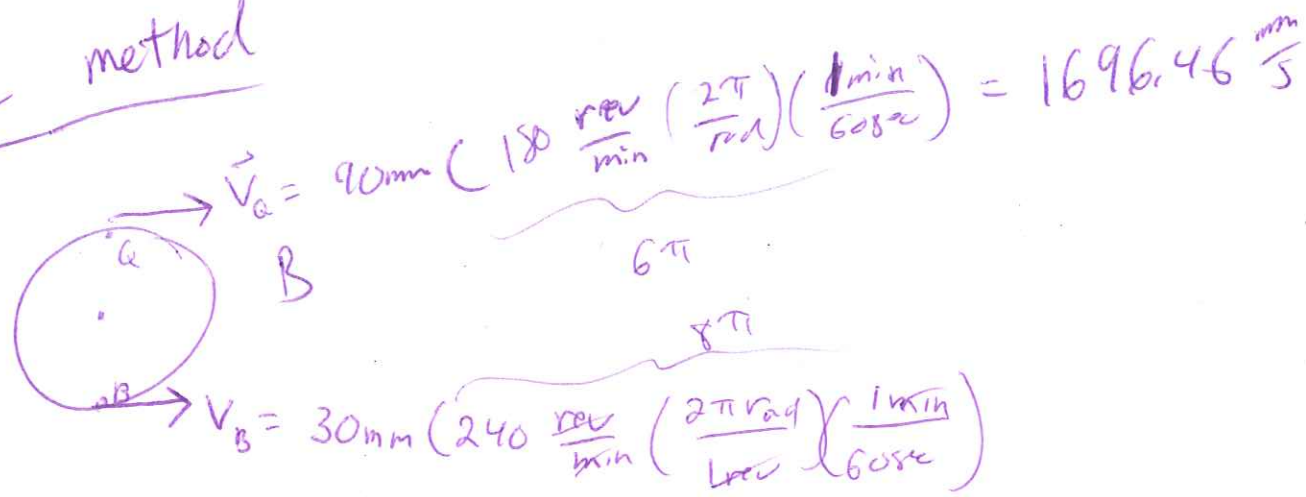 method
V⃗_Q = 90mm ( 180 rev/min (2π/rad)(1min/60sec) = 1696.46 mm/s
6π
Q
B
8π
B
V_B = 30mm (240 rev/min (2π rad/1rev)(1min/60sec)